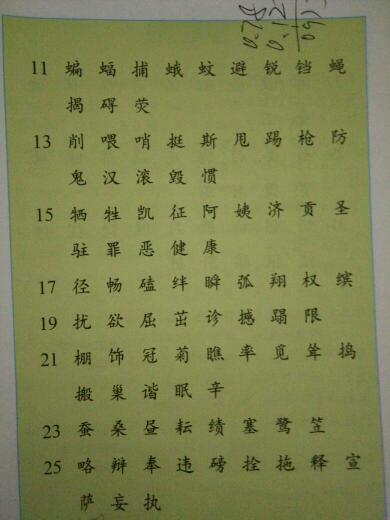 11 蝙 蝠 捕 蛾 蚊 避 锐 铛 蝇
揭 碍 荧
13 削 喂 哨 挺 斯 甩 踢 枪 防
鬼 汉 滚 毁 惯
15 牺 牲 凯 征 阿 姨 济 贡 圣
驻 罪 恶 健 康
17 径 畅 磕 绊 瞬 弧 翔 权 缤
19 扰 欲 屈 茁 诊 撼 蹋 限
21 棚 饰 冠 菊 瞧 率 觅 耸 捣
搬 巢 谐 眠 辛
23 蚕 桑 昼 耘 绩 塞 鹭 笠
25 略 辩 奉 违 磅 拴 拖 释 宣
萨 妄 执